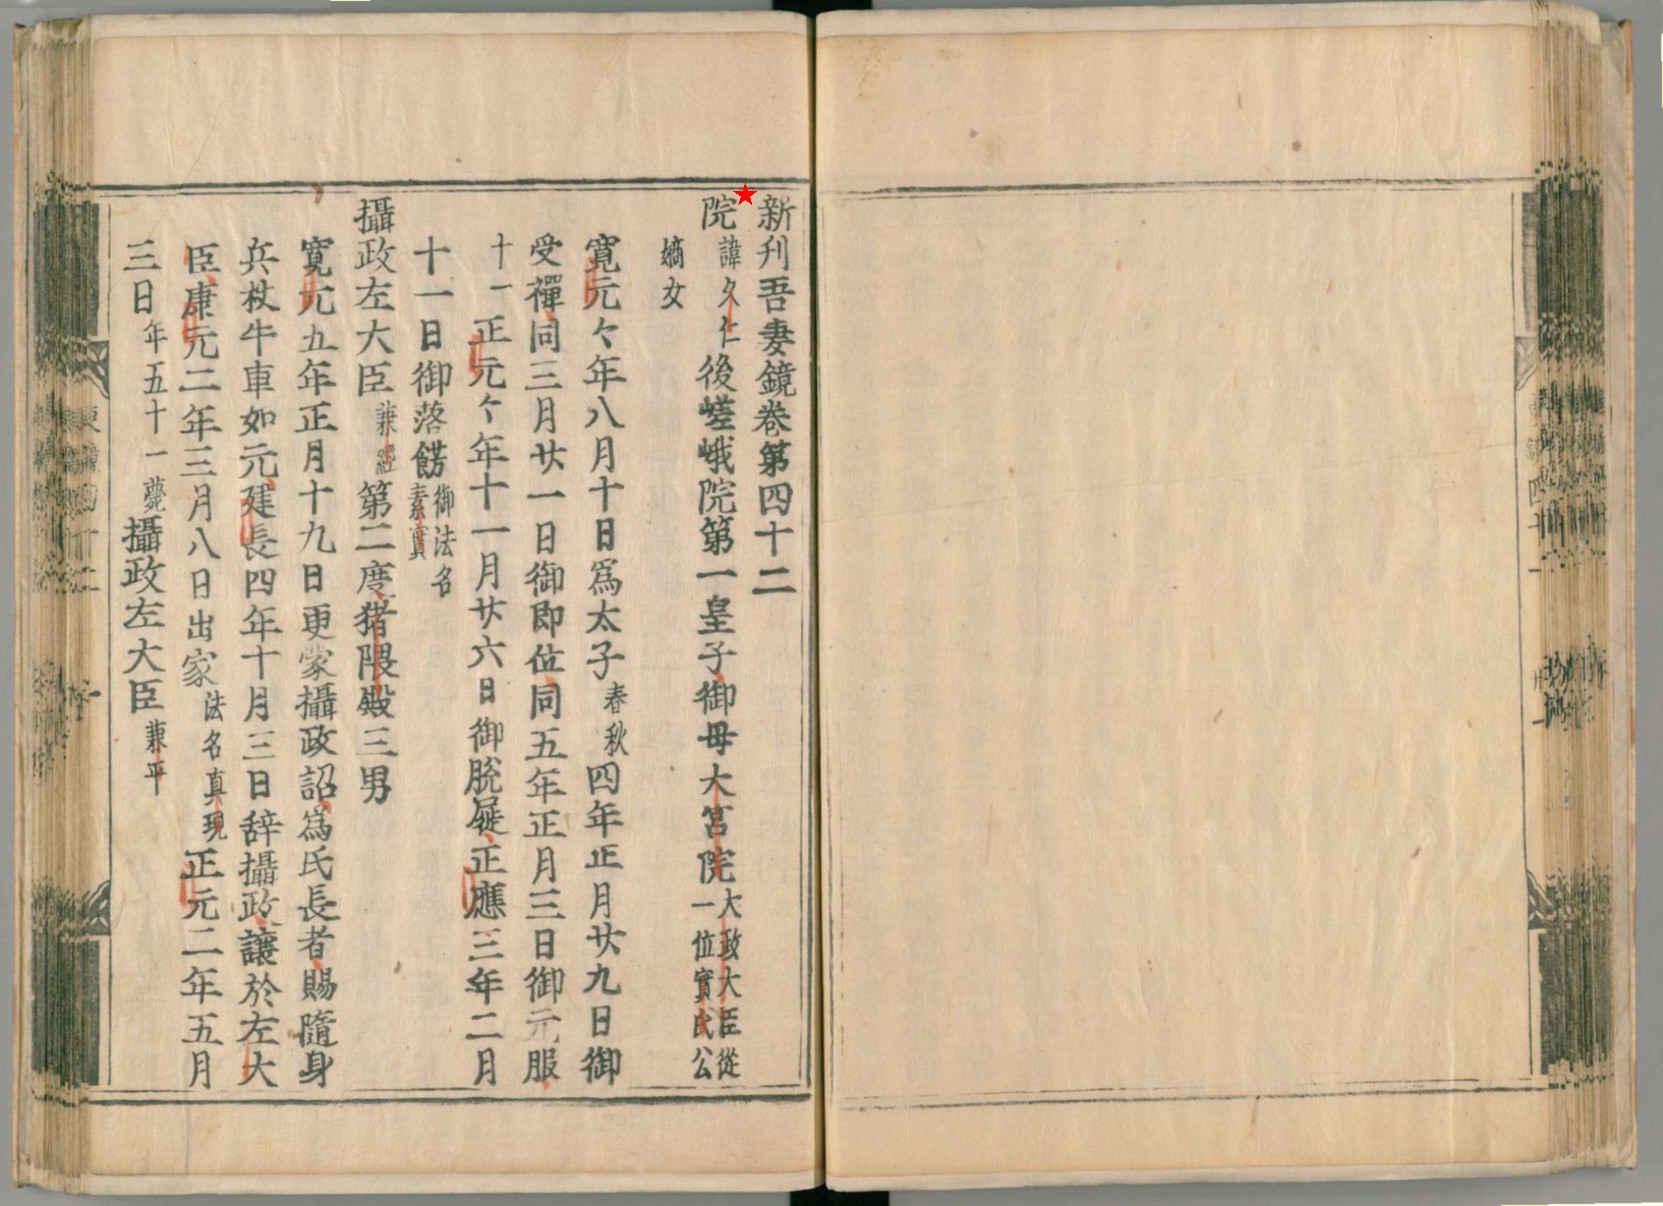 新刊吾妻鏡卷第四十二
院諱久仁後嵯峨院第一皇子御母大宮院大政大臣從一位實氏公
嫡女
寛元々年八月十日爲太子春秋四年正月廿九日御
受禪同三月廿一日御即位同五年正月三日御元服
十一正元々年十一月廿六日御脱屣正應三年二月
十一日御落餝御法名素實
攝政左大臣兼經第二度猪隈殿三男
寛元五年正月十九日更蒙攝政詔爲氏長者賜隨身
兵杖牛車如元建長四年十月三日辞攝政讓於左大
臣康元二年三月八日出家法名真現正元二年五月
三日年五十一薨攝政左大臣兼平